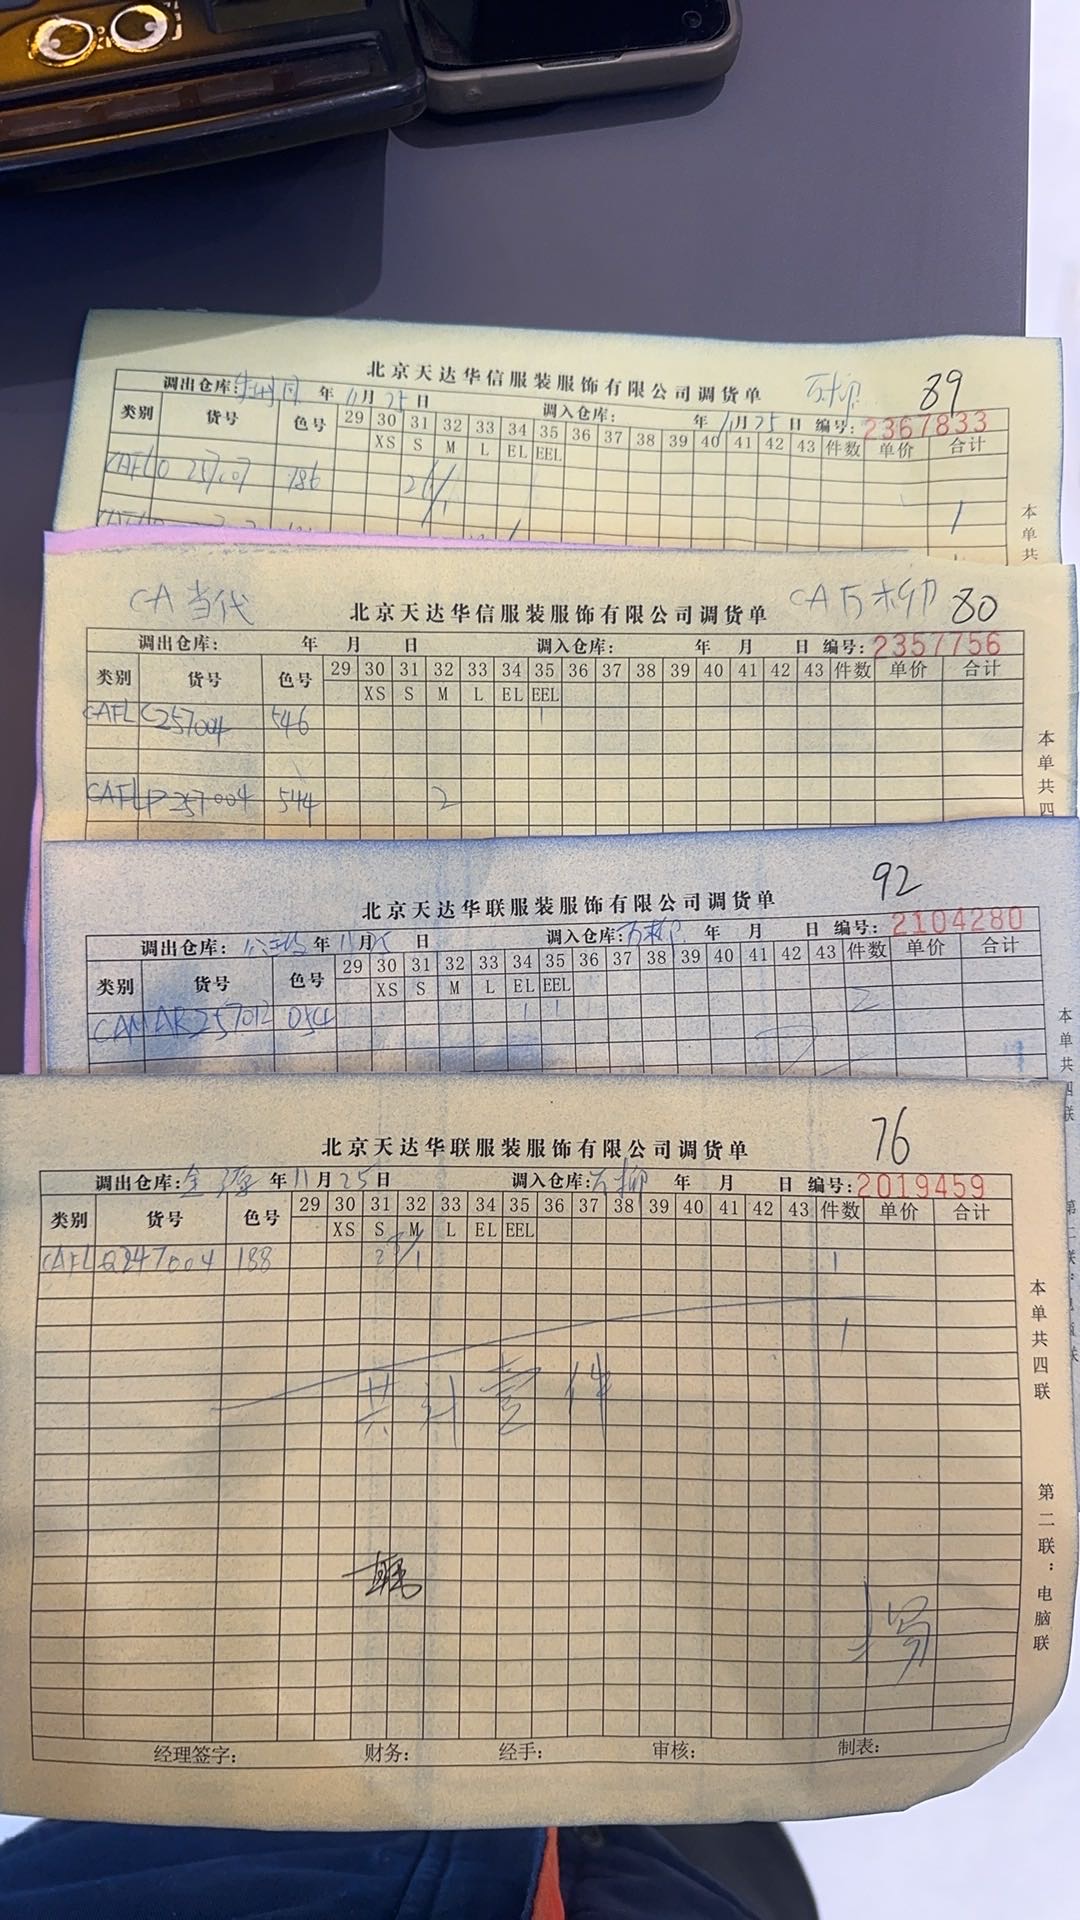 北京天达华信服装服饰有限公司调货单 万柳 89
调出仓库: 牡丹园 年 11月25日 调入仓库: 年 11月25日 编号:2367833
类别 货号 色号 29 30 31 32 33 34 35 36 37 38 39 40 41 42 43 件数 单价 合计
XS S M L EL EEL
CAFL 257107 186 26/1 1
CA当代 北京天达华信服装服饰有限公司调货单 CA万柳 80
调出仓库: 年 月 日 调入仓库: 年 月 日 编号:2357756
类别 货号 色号 29 30 31 32 33 34 35 36 37 38 39 40 41 42 43 件数 单价 合计
XS S M L EL EEL
CAFL C257004 546 1
CAFL P257004 544 2
本单共四
92
北京天达华联服装服饰有限公司调货单
调出仓库: 年 11月 日 调入仓库:万柳 年 月 日 编号:2104280
类别 货号 色号 29 30 31 32 33 34 35 36 37 38 39 40 41 42 43 件数 单价 合计
XS S M L EL EEL
CAMAR257012 054 1 1 2
本单共四联
76
北京天达华联服装服饰有限公司调货单
调出仓库:金源 年11月25日 调入仓库:万柳 年 月 日 编号:2019459
类别 货号 色号 29 30 31 32 33 34 35 36 37 38 39 40 41 42 43 件数 单价 合计
XS S M L EL EEL
CAFLQ247004 188 25/1 1
1
共计壹件
本单共四联
第二联:电脑联
杨
经理签字: 财务: 经手: 审核: 制表: